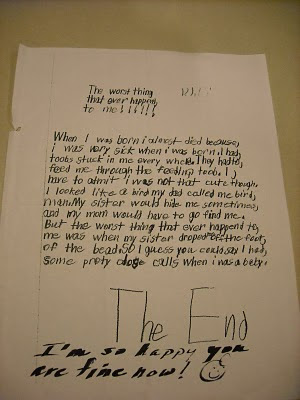 The worst thing
that ever happend
to me!!!!!!
When I was born i almost died because,
i was very sick when i was born i had,
toobs stuck in me every where. They had to,
feed me through the feeding toob. I,
have to admit I was not that cute though,
I looked like a bird my dad called me bird,
man. My sister would hide me sometimes,
and my mom would have to go find me.
But the worst thing that ever happend to,
me was when my sister droped off the foot,
of the bead. So I guess you could say I had,
some pretty close calls when i was a baby.
The End
I'm so happy you
are fine now!